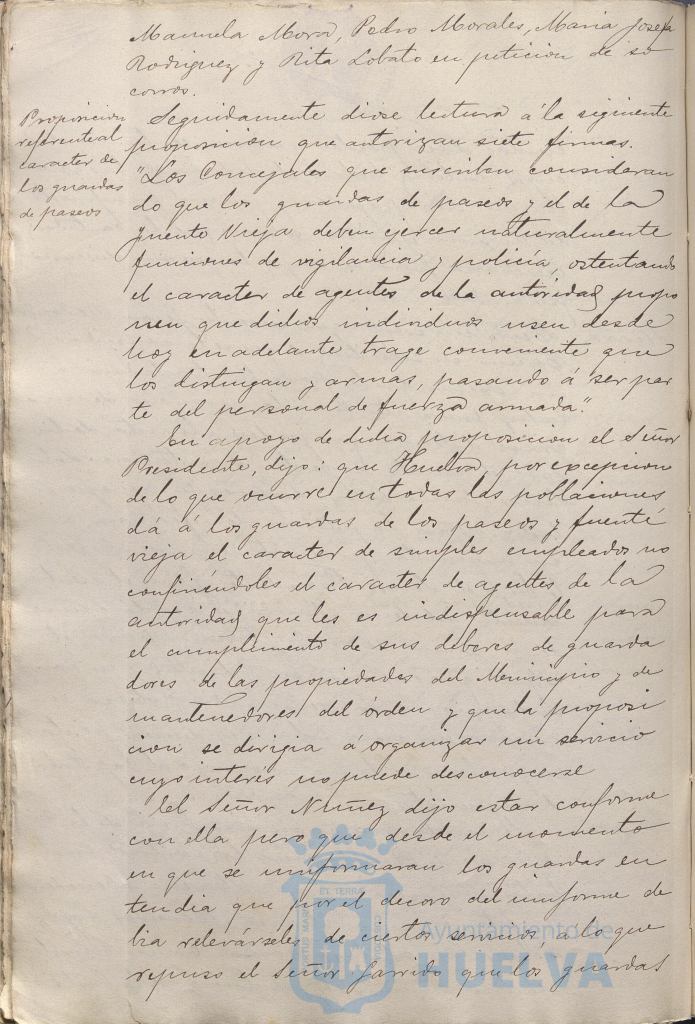 Manuela Mora, Pedro Morales, Maria Josefa
Rodriguez y Rita Lobato en peticion de so
corros.
Proposicion
referente al
caracter de
los guardas
de paseos
Seguidamente dióse lectura á la siguiente
proposicion que autorizan siete firmas.
"Los Concejales que suscriben consideran
do que los guardas de paseos y el de la
Fuente Vieja deben ejercer naturalmente
funciones de vigilancia y policía, ostentando
el caracter de agentes de la autoridad, propo
nen que dichos individuos usen desde
hoy en adelante trage conveniente que
los distingan y armas, pasando á ser par
te del personal de fuerza armada".
En apoyo de dicha proposicion el Señor
Presidente, dijo: que Huelva, por excepcion
de lo que ocurre en todas las poblaciones
dá á los guardas de los paseos y fuente
vieja el caracter de simples empleados no
confiriéndoles el caracter de agentes de la
autoridad que les es indispensable para
el cumplimiento de sus deberes de guarda
dores de las propiedades del Municipio y de
mantenedores del órden y que la proposi
cion se dirigia á organizar un servicio
cuyo interés no puede desconocerse
El Señor Nuñez dijo estar conforme
con ella pero que desde el momento
en que se uniformaran los guardas en
tendia que por el decoro del uniforme de
bia relevárseles de ciertos servicios, a lo que
repuso el Señor Garrido que los guardas
Ayuntamiento de
HUELVA